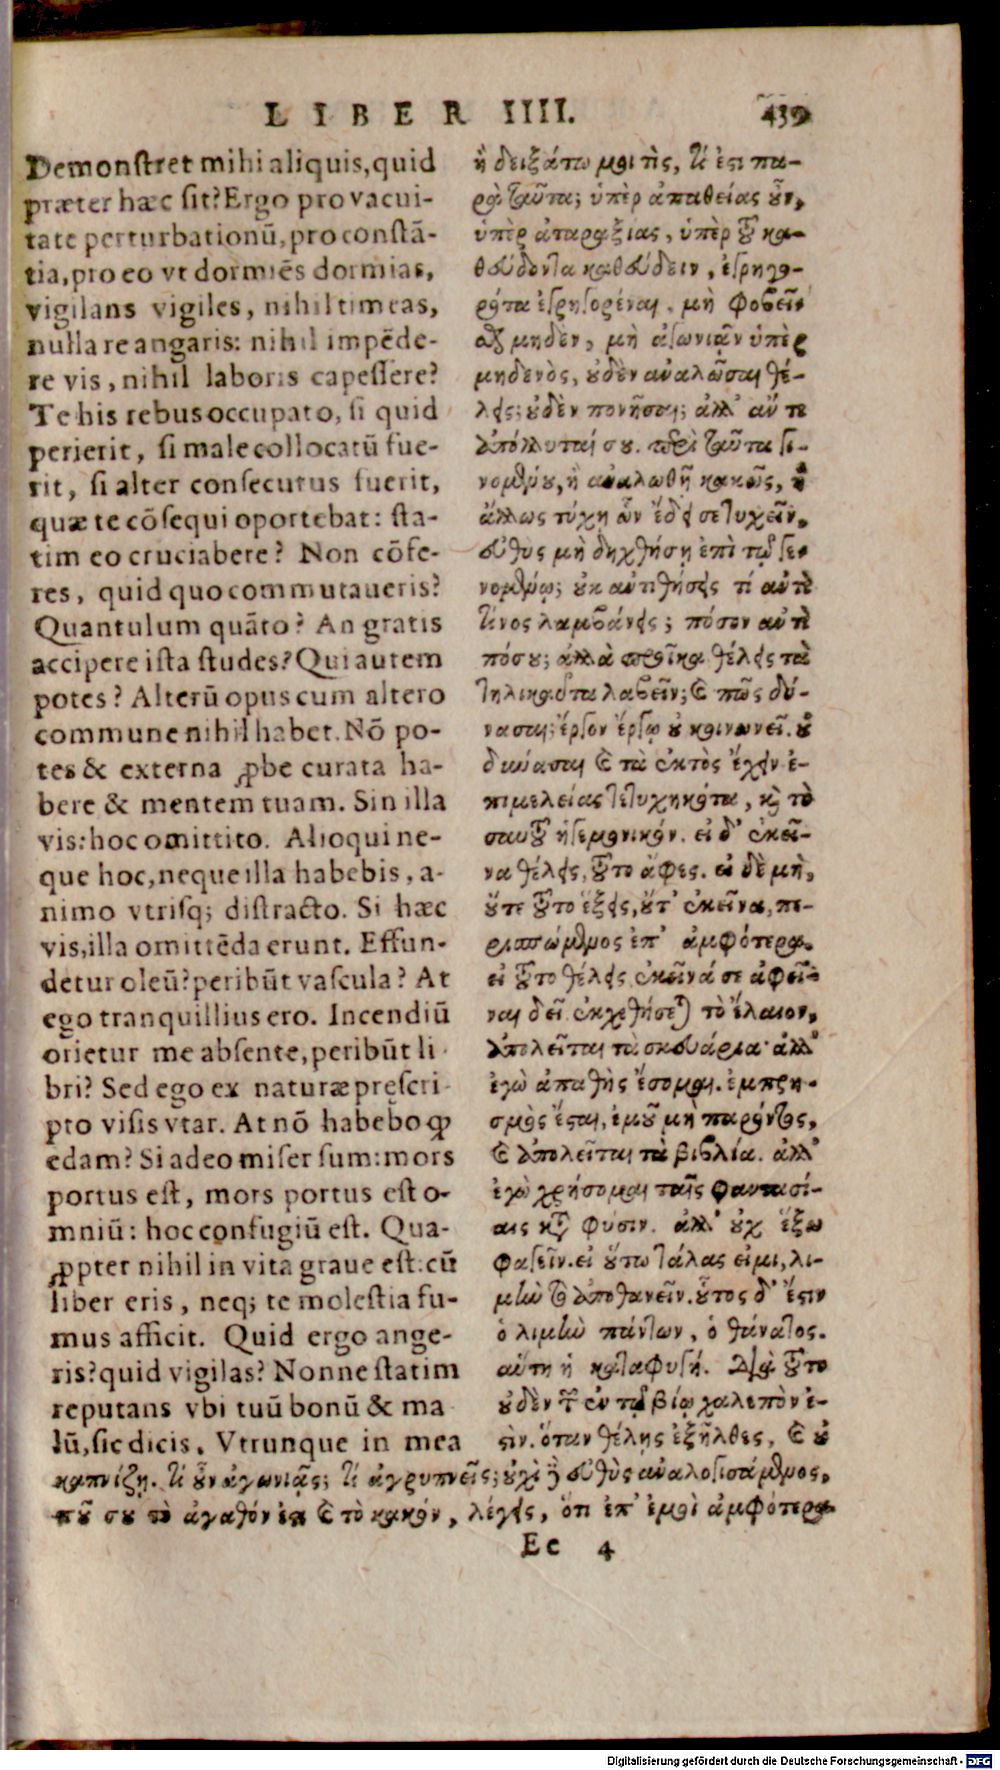 LIBER IIII. 439
Demonstret mihi aliquis, quid
præter hæc sit? Ergo pro vacui-
tate perturbationũ, pro constã-
tia, pro eo vt dormiẽs dormias,
vigilans vigiles, nihil timeas,
nulla re angaris: nihil impẽde-
re vis, nihil laboris capessere?
Te his rebus occupato, si quid
perierit, si male collocatũ fue-
rit, si alter consecutus fuerit,
quæ te cõsequi oportebat: sta-
tim eo cruciabere? Non cõfe-
res, quid quo commutaueris?
Quantulum quãto? An gratis
accipere ista studes? Qui autem
potes? Alterũ opus cum altero
commune nihil habet. Nõ po-
tes & externa ꝓbe curata ha-
bere & mentem tuam. Sin illa
vis: hoc omittito. Alioqui ne-
que hoc, neque illa habebis, a-
nimo vtrisq; distracto. Si hæc
vis, illa omittẽda erunt. Effun-
detur oleũ? peribũt vascula? At
ego tranquillius ero. Incendiũ
orietur me absente, peribũt li
bri? Sed ego ex naturæ præscri
pto visis vtar. At nõ habebo qđ
edam? Si adeo miser sum: mors
portus est, mors portus est o-
mniũ: hoc confugiũ est. Qua-
ꝓpter nihil in vita graue est: cũ
liber eris, neq; te molestia fu-
mus afficit. Quid ergo ange-
ris? quid vigilas? Nonne statim
reputans vbi tuũ bonũ & ma
lũ, sic dicis. Vtrunque in mea
ἢ δειξάτω μοι τὶς, τί ἐστι πα-
ρὰ ταῦτα; ὑπὲρ ἀπαθείας οὖν,
ὑπὲρ ἀταραξιας, ὑπὲρ τοῦ κα-
θεύδοντα καθεύδειν, ἐγρηγο-
ρότα ἐγρηγορέναι, μὴ φοβεῖσ
θαι μηδὲν, μὴ ἀγωνιᾷν ὑπὲρ
μηδενὸς, οὐδὲν ἀναλῶσαι θέ-
λεις; οὐδὲν πονῆσαι; ἀλλ' ἄν τι
ἀπόλλυταί σου. περὶ ταῦτα γι-
νομένου, ἢ ἀναλωθῇ κακῶς, ἢ
ἄλλως τύχῃ ὧν ἔδει σε τυχεῖν,
εὐθυς μὴ δηχθήσῃ ἐπὶ τῷ γε-
νομένῳ; οὐκ ἀντιθήσεις τί ἀντὶ
τίνος λαμβάνεις; πόσον ἀντὶ
πόσου; ἀλλὰ προῖκα θέλεις τὰ
τηλικαῦτα λαβεῖν; καὶ πῶς δύ-
νασαι; ἔργον ἔργῳ οὐ κοινωνεῖ. οὐ
δύνασαι καὶ τὰ ἐκτὸς ἔχειν ἐ-
πιμελείας τετυχηκότα, καὶ τὸ
σαυτοῦ ἡγεμονικόν. εἰ δ' ἐκεῖ-
να θέλεις, τοῦτο ἄφες. εἰ δὲ μὴ,
οὔτε τοῦτο ἕξεις, οὔτ' ἐκεῖνα, πε-
ρισπώμενος ἐπ' ἀμφότερα.
εἰ τοῦτο θέλεις ἐκεῖνά σε ἀφεῖ-
ναι δεῖ. ἐκχεθήσεται τὸ ἔλαιον,
ἀπολεῖται τὰ σκευάρια· ἀλλ'
ἐγὼ ἀπαθὴς ἔσομαι. ἐμπρη-
σμὸς ἔσται, ἐμοῦ μὴ παρόντος,
καὶ ἀπολεῖται τὰ βιβλία. ἀλλ'
ἐγὼ χρήσομαι ταῖς φαντασί-
αις κατὰ φύσιν. ἀλλ' οὐχ ἕξω
φαγεῖν. εἰ οὕτω τάλας εἰμι, λι-
μὴν τὸ ἀποθανεῖν. οὗτος δ' ἔστιν
ὁ λιμὴν πάντων, ὁ θάνατος.
αὕτη ἡ καταφυγή. Διὰ τοῦτο
οὐδὲν τῶν ἐν τῷ βίῳ χαλεπὸν ἐ-
στὶν. ὅταν θέλῃς ἐξῆλθες, καὶ οὐ
καπνίζῃ. τί οὖν ἀγωνιᾷς; τί ἀγρυπνεῖς; οὐχὶ δὲ εὐθὺς ἀναλογισάμενος,
ποῦ σου τὸ ἀγαθόν ἐστι καὶ τὸ κακόν, λέγεις, ὅτι ἐπ' ἐμοὶ ἀμφότερα
Ee 4
Digitalisierung gefördert durch die Deutsche Forschungsgemeinschaft - DFG